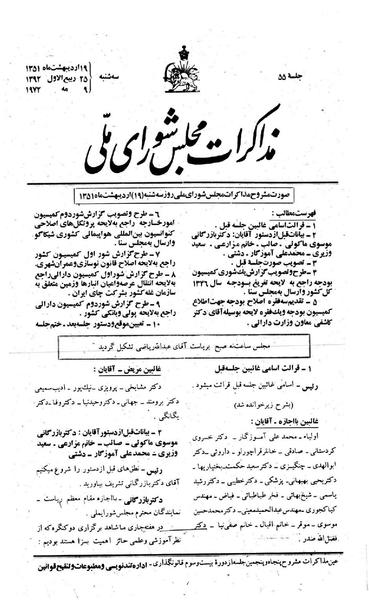 جلسهٔ ۵۵
سه‌شنبه
۱۹ اردیبهشت ماه ۱۳۵۱
۲۵ ربیع‌الاول ۱۳۹۲
۹ مه ۱۹۷۲
مذاکرات مجلس شورای ملی
صورت مشروح مذاکرات مجلس شورای ملی روز سه شنبه (۱۹) اردیبهشت ماه ۱۳۵۱
فهرست مطالب :
۱ - قرائت اسامی غائبین جلسه قبل .
۲ - بیانات قبل از دستور آقایان : دکتر بازرگانی
موسوی ماکوئی - صائب - خانم مزارعی - سعید
وزیری - محمد علی آموزگار - دشتی .
۳ - تصویب صورت جلسه قبل .
۴ - طرح و تصویب گزارش یک شوری کمیسیون
بودجه راجع به لایحه تفریغ بودجه سال ۱۳۴۶
کل کشور و ارسال به مجلس سنا .
۵ - تقدیم سه فقره اصلاح بودجه جهت اطلاع
کمیسیون بودجه و یک فقره لایحه بوسیله آقای دکتر
کاشفی معاون وزارت دارائی .
۶ - طرح و تصویب گزارش شور دوم کمیسیون
امور خارجه راجع به لایحه پروتکل‌های اصلاحی
کنوانسیون بین‌المللی هواپیمائی کشوری شیکاگو
و ارسال به مجلس سنا .
۷ - طرح گزارش شور اول کمیسیون کشور
راجع به لایحه قانون نوسازی و عمران شهری.
۸ - طرح گزارش شور اول کمیسیون دارائی راجع
به لایحه انتقال عرصه و اعیان انبارها و زمین متعلق به
سازمان غله کشور به شرکت چای ایران .
۹ - طرح گزارش شور دوم کمیسیون دارائی
راجع به لایحه پولی و بانکی کشور .
۱۰ - تعیین موقع و دستور جلسه بعد. ختم جلسه
مجلس ساعت نه صبح بریاست آقای عبدالله ریاضی تشکیل گردید
۱ - قرائت اسامی غائبین جلسه قبل
رئیس - اسامی غائبین جلسه قبل قرائت میشود .
(بشرح زیر خوانده شد)
غائبین با اجازه - آقایان :
اولیاء - محمد علی آموزگار - دکتر خسروی
کردستانی - صادقی - خانلر قراچورلو - داروئی - دکتر
ابوالهدی - چنگیزی - دکتر سعید حکمت - بختیاریها -
دکتر یحیی بهبهانی - پزشکی - دکتر خطیبی - رشید
یاسمی - شیخ بهائی - فخر طباطبائی - فیاض - مهندس
کیاکجوری - مهندس عبدالحمید معینی - دکتر محمد حسین
موسوی - موقر - خانم اقبال - خانم صفی‌نیا - دکتر
فضل‌الله صدر
غائبین مریض - آقایان :
دکتر مشایخی - پرویزی - نیک‌پور - ادیب سمیعی
دکتر برومند - جهانی - دکتر وحیدنیا - دکتر وفا - دکتر
یگانگی .
۲ - بیانات قبل از دستور آقایان : دکتر بازرگانی
موسوی ماکوئی - صائب - خانم مزارعی - سعید
وزیری - محمد علی آموزگار - دشتی
رئیس - نطق‌های قبل از دستور را شروع میکنیم
آقای دکتر بازرگانی تشریف بیاورید .
دکتر بازرگانی - با اجازه مقام معظم ریاست -
نمایندگان محترم مجلس شورایملی .
در هفته جاری ما شاهد برگزاری دو کنگره که از
نظر آموزشی و علمی حائز اهمیت بسزا هستند بودیم .
عین مذاکرات مشروح پنجاه و پنجمین جلسه از دورهٔ بیست و سوم قانونگذاری - اداره تندنویسی و مطبوعات و تنقیح قوانین